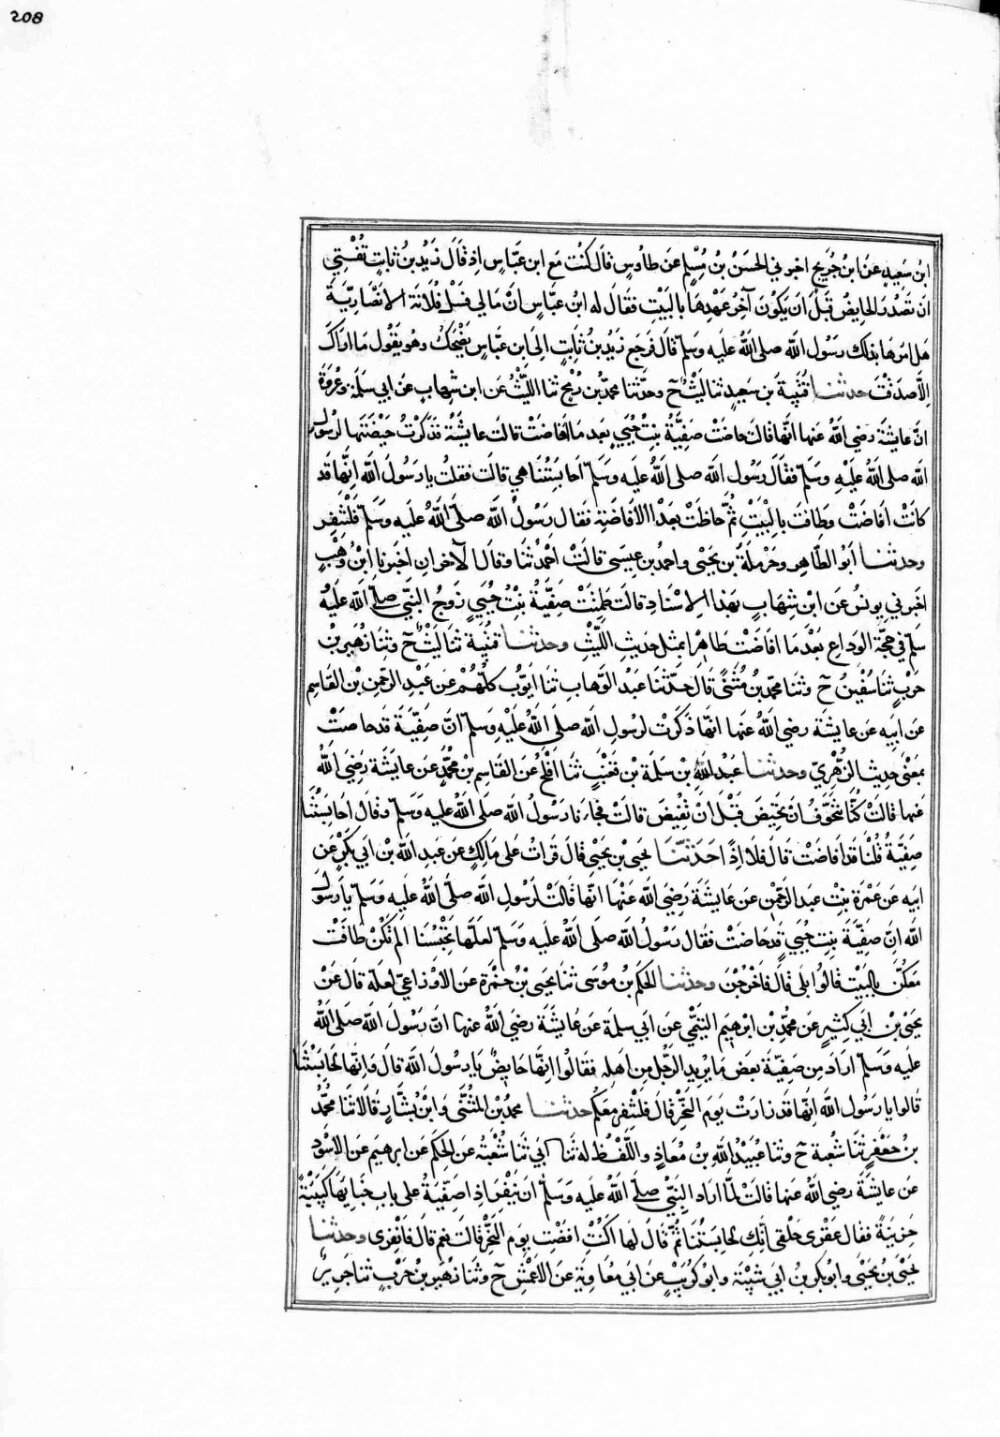 208
ابن سَعيدٍ عن ابن جُريج اخبرني الحَسَنُ بن مُسلِمٍ عن طاوسٍ قال كنتُ مَعَ ابن عبّاس اذ قَالَ زَيْدُ بنُ ثابتٍ تُفْتِي
ان تَصْدُرَ الحايضُ قبْلَ ان يَكُونَ آخِرُ عَهْدِهَا بالبَيْتِ فقَالَ له ابنُ عبّاسٍ امّا لي فسَلْ فُلانَة الانصَاريّة
هل امَرها بذلك رسُول الله صلى اللهُ عليه وسَلّم قالَ فرجع زيد بنُ ثابتٍ الى ابن عباسٍ يضْحكُ وهو يقُول ما اراك
الّا صدَقْتَ حدثنا قُتَيبة بن سَعِيدٍ ثنا ليْثٌ ح وحدّثنا محمّد بن رُمْحٍ ثنا الليْثُ عن ابن شهابٍ عن ابي سلَمة وعُروَةَ
انّ عايشَة رضي اللهُ عنها انّها قالت حاضتْ صَفيّةُ بنتُ حُيَيٍّ بعد ما افاضَتْ قالت عايشَةُ فذكَرْتُ حَيْضَتَها لرسُول
الله صلى اللهُ علَيْهِ وسَلّم فقَالَ رسُول الله صلى اللهُ عليه وسَلّم احَابِسَتُنَا هي قالت فقلتُ يا رَسُولَ الله انّها قَد
كانَتْ افاضَتْ وطافَت بالبَيْتِ ثُمّ حاظَتْ بعدَ الافاضَةِ فقال رسُولُ الله صلى اللهُ عليه وسَلّم فلْتَنفِر
وحدثنا ابو الطّاهر وحَرْملَة بن يَحيَى واحمد بن عيسَى قالت احْمدُ ثنا وقَالَ الآخرانِ اخبَرنا ابنُ وهْبٍ
اخبرني يونسُ عن ابن شِهابٍ بهذا الاسْنَادِ قالت طَمِثَتْ صَفيّةُ بنْتُ حُيَيٍّ زَوجُ النّبيّ صلى الله علَيه
سلّم في حجّة الوداع بعْدَ ما افاضَتْ طاهِرًا بمثل حديثِ اللّيْثِ وحدثنا قتُيبة ثنا ليْثٌ ح وثنا زُهَير بن
حَربٍ ثنا سُفيٰنُ ح وثنا محمّد بن مُثنّىً قالَ حدّثنا عبد الوَهاب ثنا ايّوبُ كلّهُمْ عن عبْدِ الرّحمنِ بن القَاسِم
عن ابيه عن عايشَة رضي اللهُ عنها انّها ذكرَت لرسُولِ الله صلى اللهُ عليْهِ وسَلّم انّ صَفيّةَ قدحاضتْ
بمعْنى حديث الزّهْريّ وحدثنا عبْدُ اللهِ بن مسلمة بن قعْنَبٍ ثنا افْلحُ عن القَاسِم بن محمّدٍ عن عايشَة رضي اللهُ
عنها قالت كُنّا نتخَوّفُ ان تحِيضَ قبْلَ انْ تفُيضَ قالتْ فجاءَنا رسُولُ الله صلى اللهُ عليه وسَلّم وقالَ احَابِسَتُنَا
صفيّةُ قُلْنَا قد افاضَتْ قالَ فلا اذًا حَدَثّنا يحيى بن يَحيى قالَ قراتُ على مالكٍ عن عبد الله بن ابي بكْرٍ عن
ابيه عن عَمْرَة بنتِ عبد الرّحمٰن عن عايشَة رَضي الله عَنْها انّها قالتْ لرسُولِ الله صلى اللهُ عليه وَسَلّم يا رَسُولَ
الله انّ صفيّة بنت حُيَيٍّ قد حَاضَتْ فقال رسُولُ الله صلى اللهُ عليه وسَلّم لعلّها تحْبسُنَا الم تكُنْ طافَتْ
معَكُنّ بالبَيْت قالُوا بلى قالَ فَاخْرُجْنَ وحدثنا الحكمُ بنُ موُسَى ثنا يحيَى بنُ حَمْزَة عن الاوْزاعيّ لعلّه قالَ عَن
يحيى بن ابي كثيرٍ عن محمّد بن ابرهيم التيْميّ عن ابي سلمة عن عَايشَة رضي اللهُ عنها انّ رَسُول الله صلى اللهُ
علَيه وَسَلّم ارَاد من صفيّة بعضَ ما يُريد الرجُل من اهله فقَالُوا انّها حايضٌ يا رسُول الله قالَ وانّها لحابسَتُنَا
قالوا يا رَسُول الله انّها قد زارتْ يَومَ النّحرِ قالَ فلْتَنفِر معَكُم حدثنا محمد بن المُثنّى وابنُ بشّارٍ قالا ثنا محمّدُ
بنُ جَعْفَرٍ ثنا شعْبة ح وثنا عبُيْدُ اللهِ بن مُعاذٍ واللّفْظُ له ثنا ابي ثنا شُعْبَةُ عن الحكم عن ابرهيم عن الاسْود
عن عايشةَ رضي اللهُ عنها قالتْ لمّا اراد النّبيّ صلى اللهُ عليه وسَلّم ان ينْفِرَ اذا صَفيّةُ على باب خبايها كئيبَةً
حَزينةً فقال عَقْرى حَلقى انكِ لحابسَتُنا ثمّ قالَ لها اكُنْتِ افضْتِ يوم النّحْرِ قالت نعم قالَ فَانْفِري وحدثنا
يَحْيَى بنُ يَحْيَى وابو بكر بنُ ابي شيْبَة وابو كُرَيْبٍ عن ابي مُعَاوية عن الاعْمشِ ح وثنا زهَيرُ بن حَرْبٍ ثنا جَريرٌ